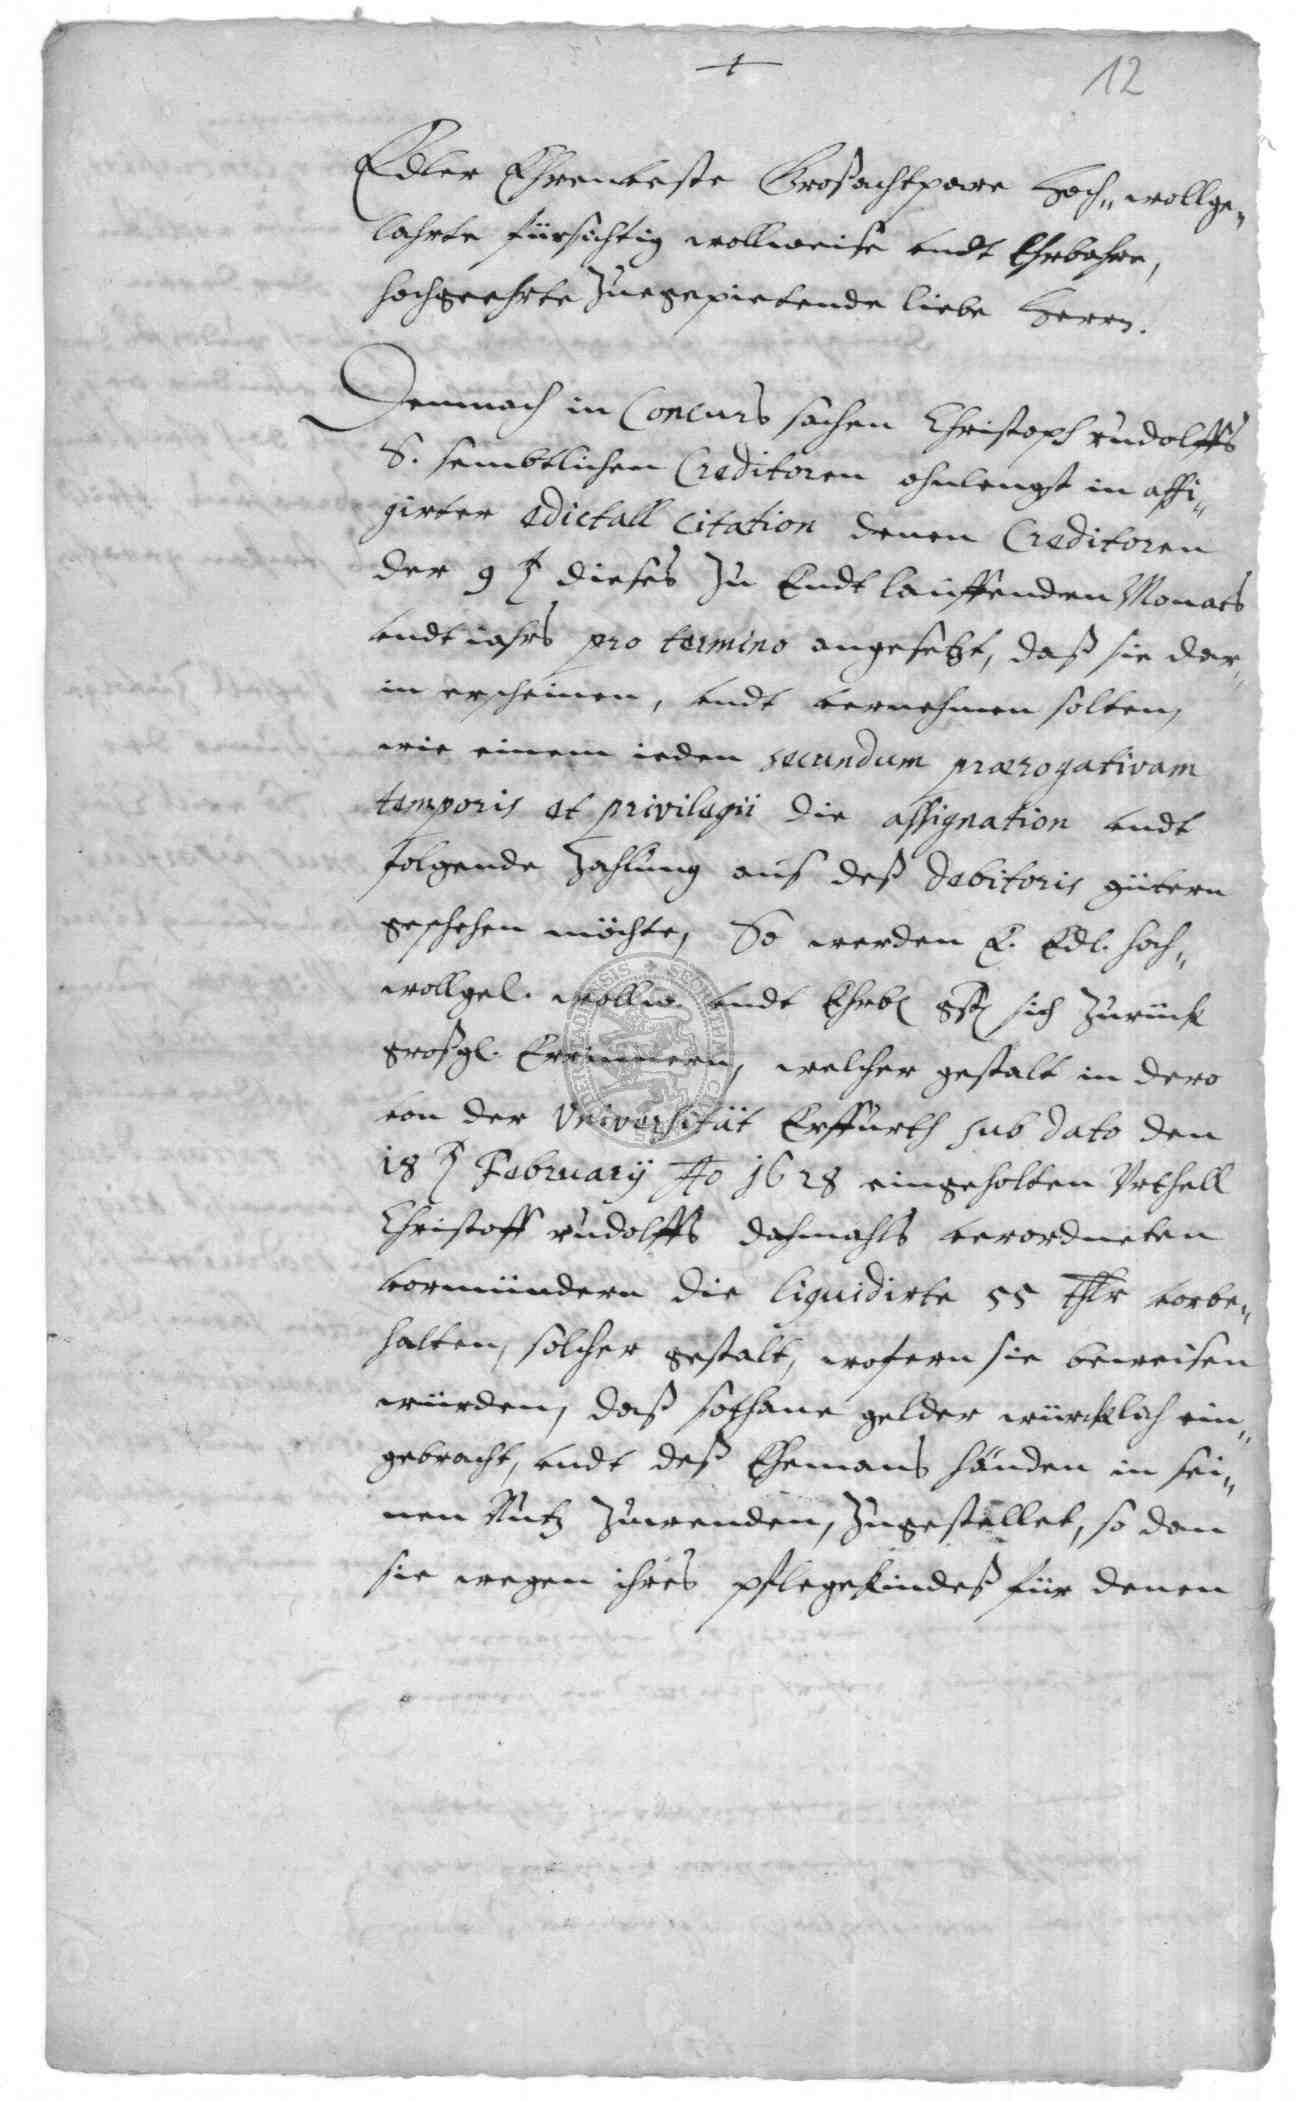 12
Edler Ehrenveste Großachtpare Hoch„ wollge„
lahrte fürsichtig wollweise undt Ehrbahre,
hochgeehrte Zuegepietende liebe Herrn.
Demnach in Concurs sachen Christoph rudolffs
S. sembtlichen Creditoren ohnlengst in affi„
girter edictall citation denen Creditoren
der 9 t dieses Zu Endt lauffenden Monats
undt iahrs pro termino angesetzt, daß sie dar„
in erscheinen, undt vernehmen solten,
wie einem ieden secundum prærogativam
temporis et privilegii die assignation undt
folgende Zahlung aus deß debitoris gütern
geschehen möchte, So werden E. Edl. hoch„
wollgel. wollw. undt Ehrb. gst. sich Zurück
großgl. Erinnern, welcher gestalt in dero
von der Universität Erffurth sub dato den
18 t Februarij Ao 1628 eingeholten Vrthell
Christoff rudolffs dahmahls verordneten
vormündern die liquidirte 55 thlr vorbe„
halten, solcher gestalt, wofern sie beweisen
würden, daß sothane gelder würcklich ein„
gebracht, undt deß Ehemans händen in sei„
nen Nutz Zuwenden, Zugestellet, so dan
sie wegen ihres pflegekindeß für denen